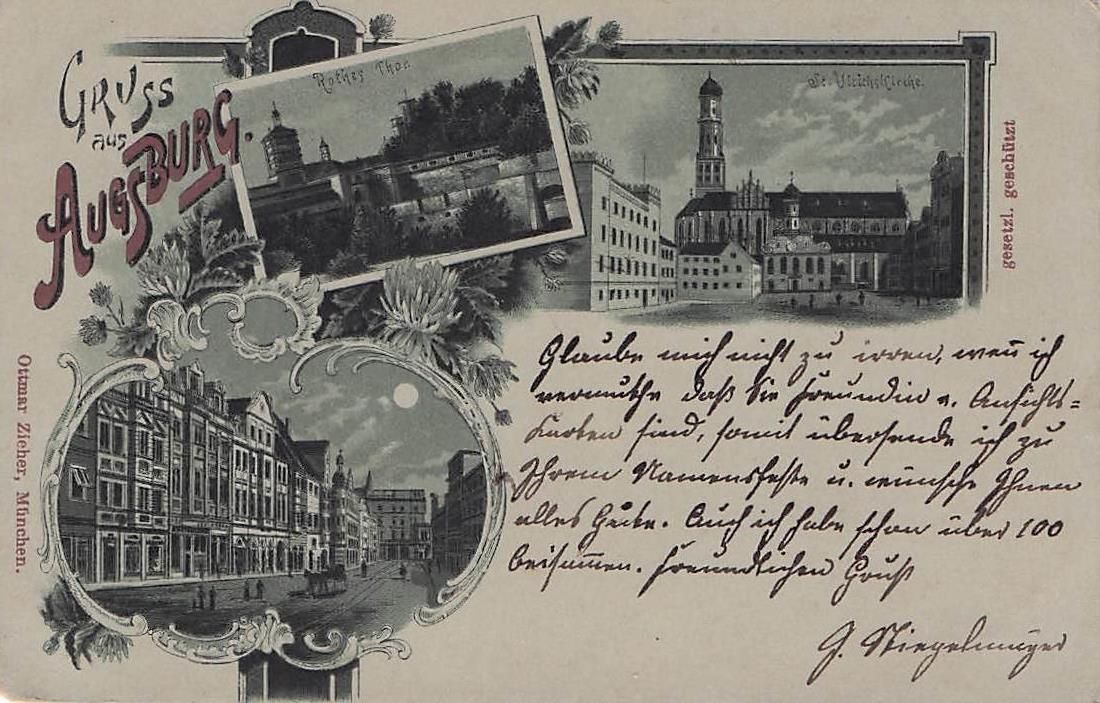 Gruss
aus
Augsburg.
Rothes Thor
St. Ulrichskirche.
gesetzl. geschützt
Ottmar Zieher, München.
Glaube mich nicht zu irren, wen̄ ich
vermuthe daß Sie Freundin v. Ansichts-
Karten sind, somit übersende ich zu
Ihrem Namensfeste u. wünsche Ihnen
alles Gute. Auch ich habe schon über 100
beisam̄en. Freundlichen Gruß
G.